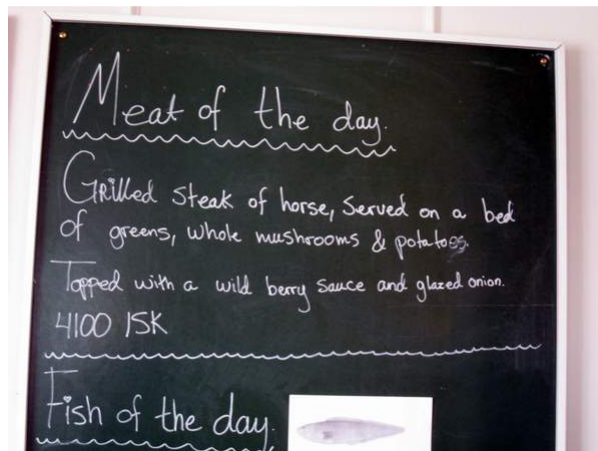 Meat of the day.
Grilled steak of horse, served on a bed
of greens, whole mushrooms & potatoes.
Topped with a wild berry sauce and glazed onion.
4100 ISK
Fish of the day.